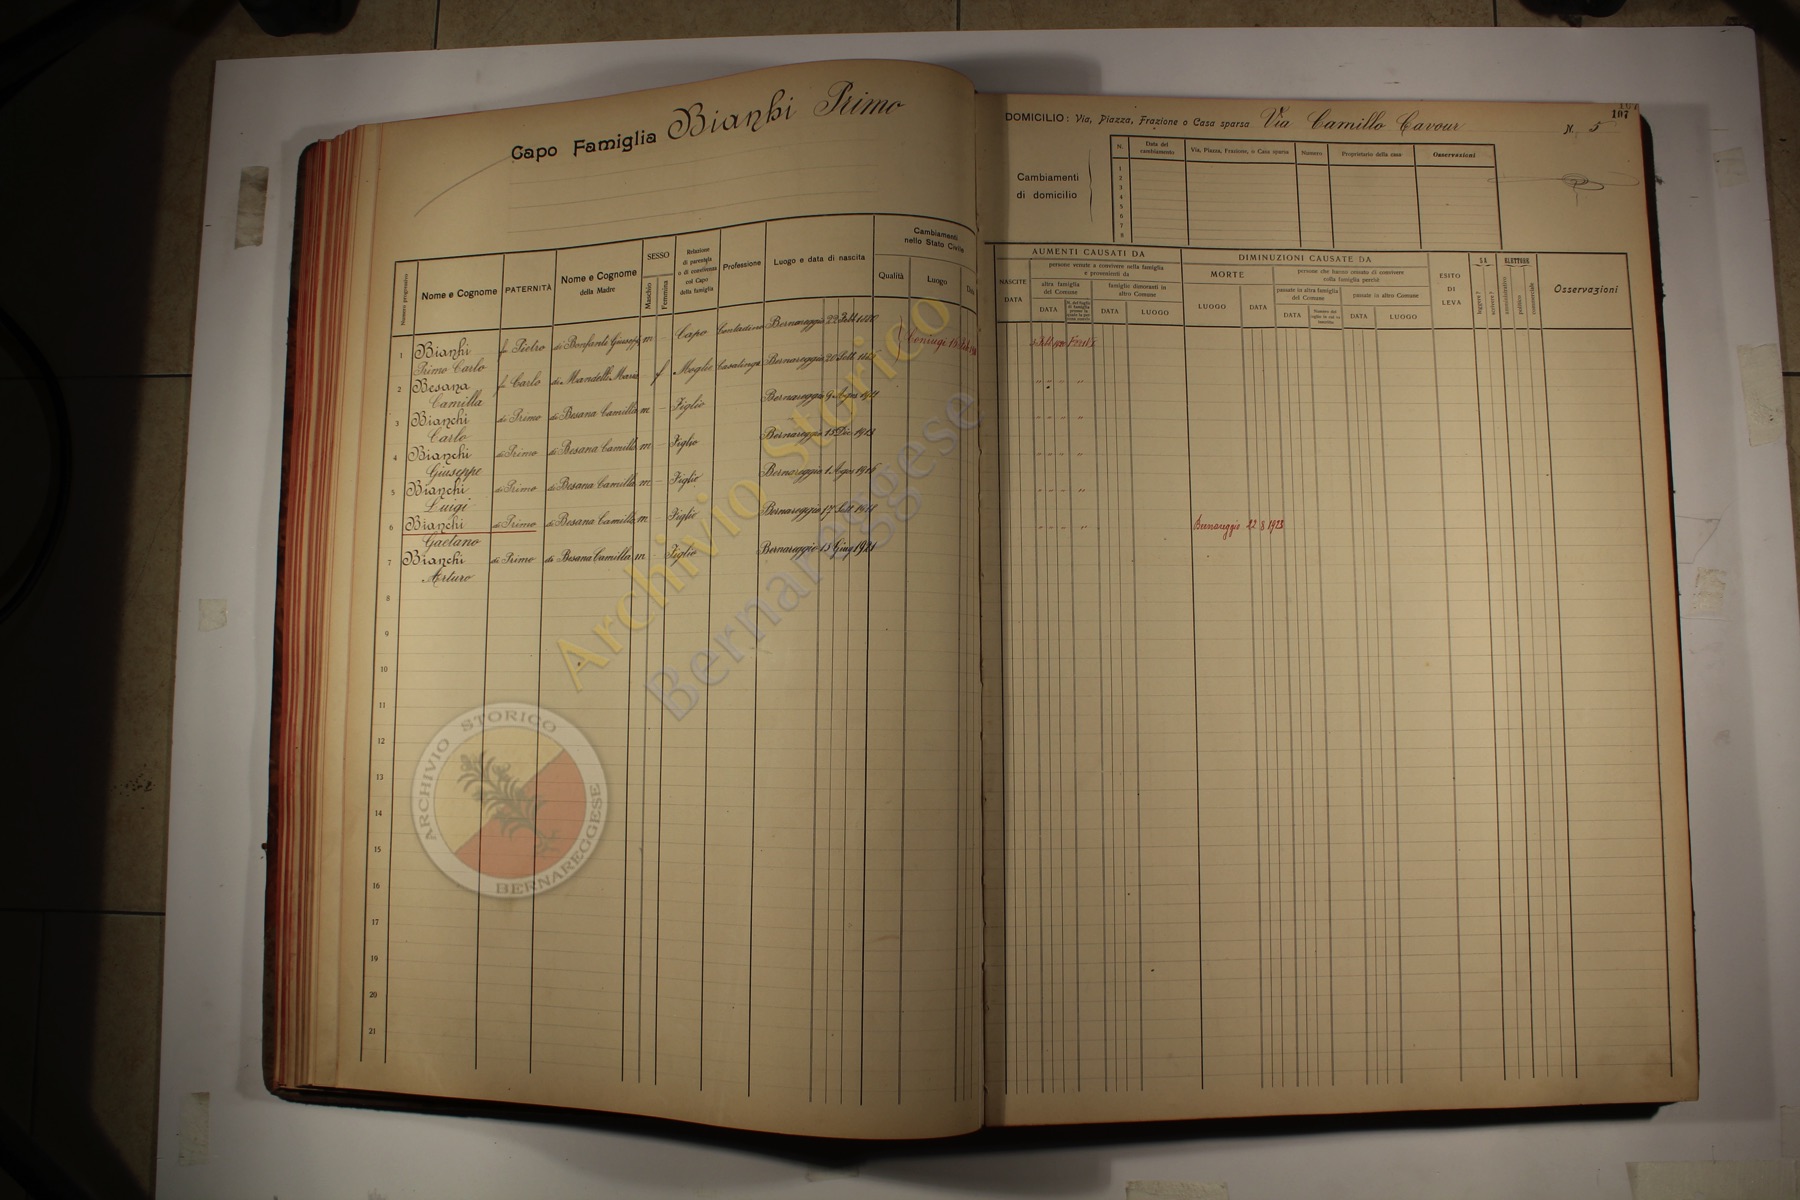 Capo Famiglia Bianhi Primo
Numero progressivo
Nome e Cognome
PATERNITÀ
Nome e Cognome
della Madre
SESSO
Maschio
Femmina
Relazione
di parentela
o di convivenza
col Capo
della famiglia
Professione
Luogo e data di nascita
Cambiamenti
nello Stato Civile
Qualità
Luogo
Data
1 Bianhi fu Pietro di Bonfanti m Capo Contadino Bernareggio 22 Febb
Primo Carlo
2 Besana fu Carlo di Mandelli Maria f Moglie Casalinga Bernareggio 20 Sett
Camilla
3 Bianchi di Primo di Besana Camilla m Figlio Bernareggio 9 Agos 1911
Carlo
4 Bianchi di Primo di Besana Camilla m Figlio Bernareggio 13 Dic 1913
Giuseppe
5 Bianchi di Primo di Besana Camilla m Figlio Bernareggio 1 Agos
Luigi
6 Bianchi di Primo di Besana Camilla m Figlio Bernareggio 17
Gaetano
7 Bianchi di Primo di Besana Camilla m Figlio Bernareggio 15 Giug 1921
Arturo
8
9
10
11
12
13
14
15
16
17
18
19
20
21
Coniugi
107
DOMICILIO: Via, Piazza, Frazione o Casa sparsa Via Camillo Cavour N. 5
Cambiamenti
di domicilio
N.
Data del
cambiamento
Via, Piazza, Frazione, o Casa sparsa
Numero
Proprietario della casa
Osservazioni
1
2
3
4
5
6
7
8
NASCITE
DATA
AUMENTI CAUSATI DA
persone venute a convivere nella famiglia
e provenienti da
altra famiglia
del Comune
DATA
famiglie dimoranti in
altro Comune
DATA
LUOGO
DIMINUZIONI CAUSATE DA
MORTE
LUOGO
DATA
persone che hanno cessato di convivere
colla famiglia perchè
passate in altra famiglia
del Comune
DATA
passate in altro Comune
DATA
LUOGO
ESITO
DI
LEVA
SA
leggere?
scrivere?
ELETTORE
amministrativo
politico
commerciale
Osservazioni
Bernareggio 22 8 1923
Archivio Storico
Bernareggese
ARCHIVIO STORICO
BERNAREGGESE